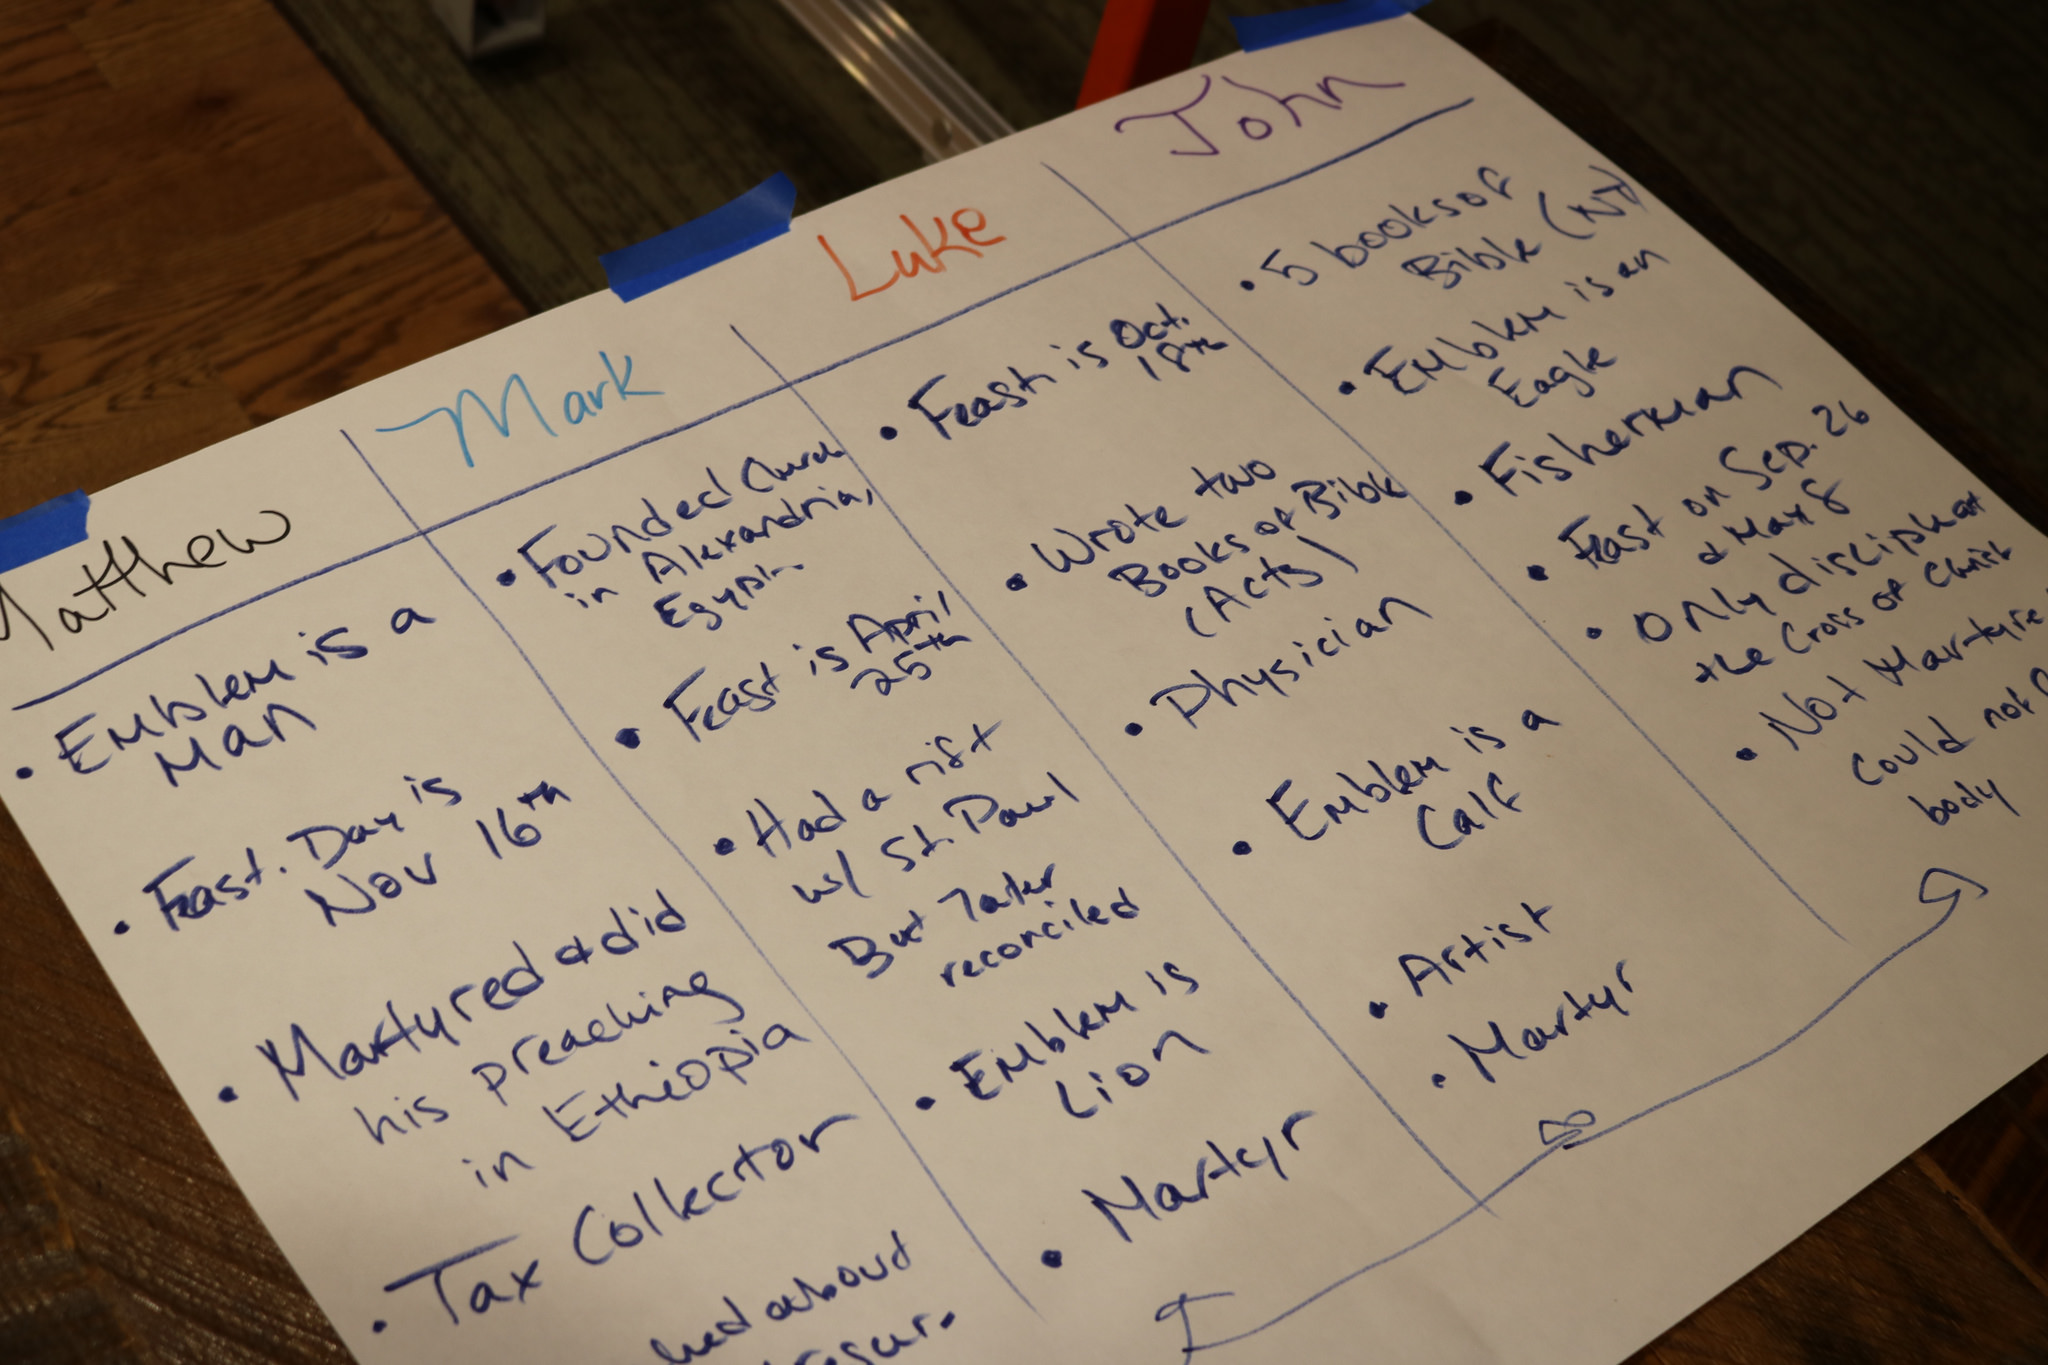 Matthew
• Emblem is a
Man
• Feast. Day is
Nov 16th
• Martyred & did
his preaching
in Ethiopia
• Tax Collector
about
Mark
• Founded Church
in Alexandria,
Egypt.
• Feast is April
25th
• Had a rift
w/ St. Paul
But later
reconciled
• Emblem is
Lion
• Martyr
Luke
• Feast is Oct.
18th
• Wrote two
Books of Bible
(Acts)
• Physician
• Emblem is a
Calf
• Artist
• Martyr
John
• 5 books of
Bible (NT)
• Emblem is an
Eagle
• Fisherman
• Feast on Sep. 26
& May 8
• Only disciple at
the Cross of Christ
• Not Martyre
Could not
body